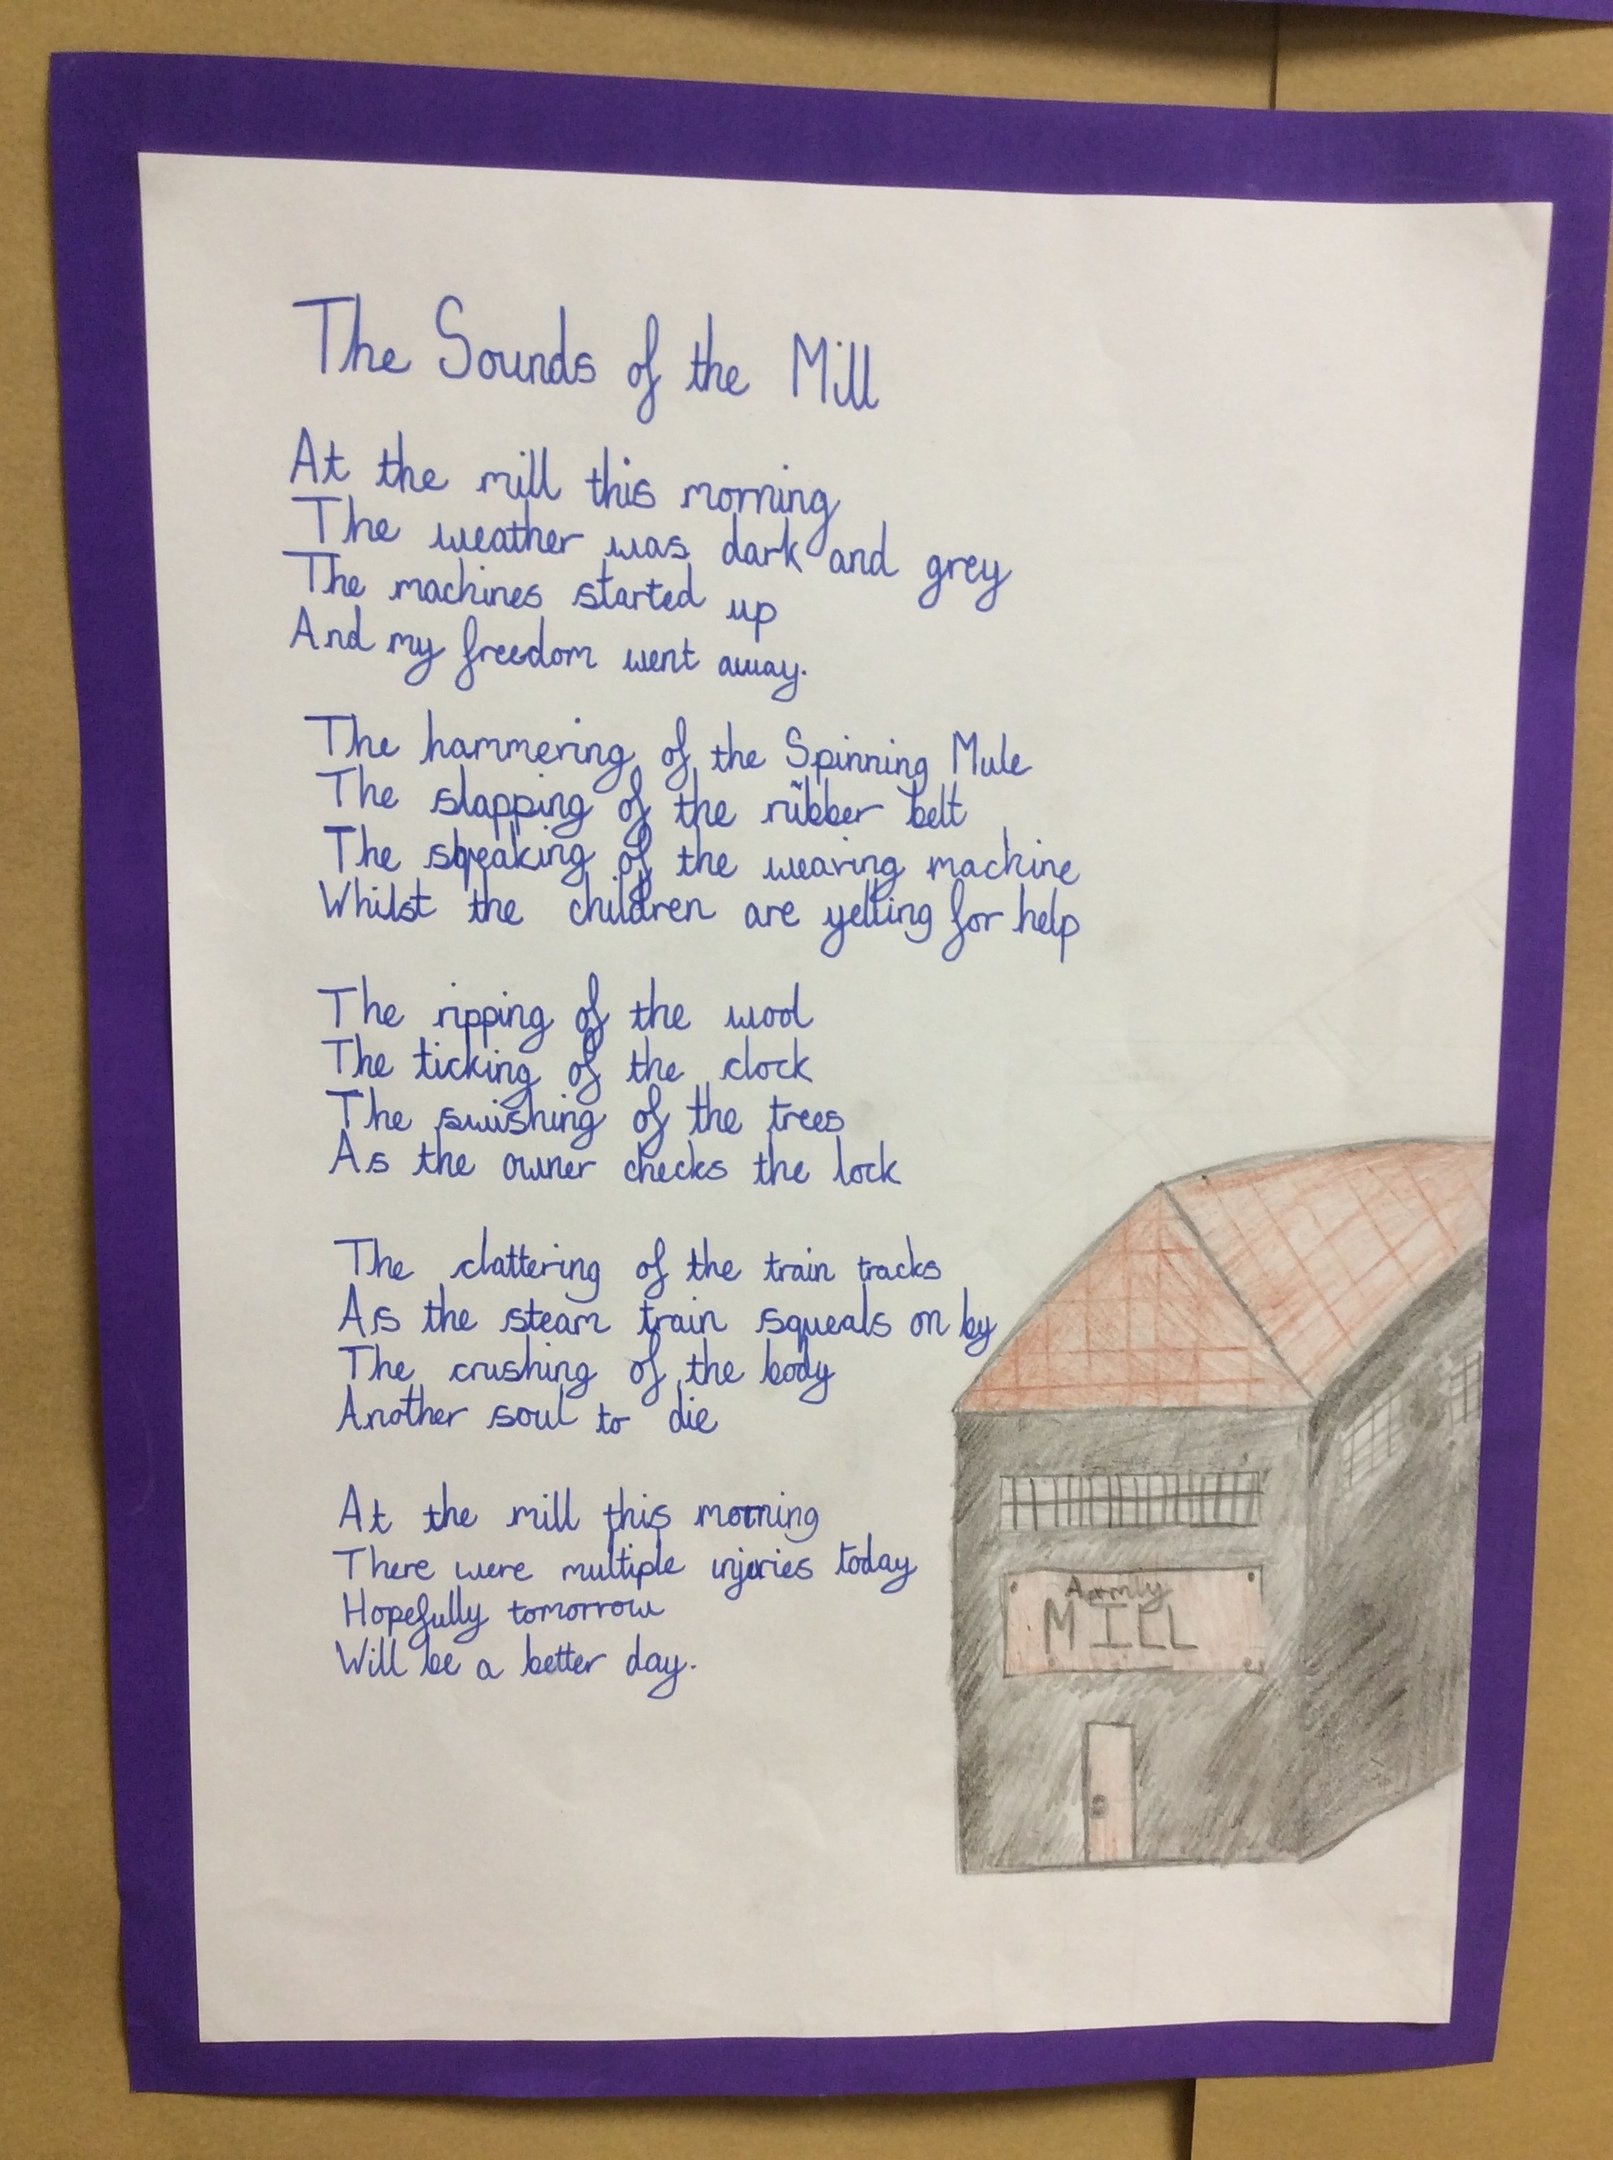 The Sounds of the Mill
At the mill this morning
The weather was dark and grey
The machines started up
And my freedom went away.
The hammering of the Spinning Mule
The slapping of the rubber belt
The speaking of the weaving machine
Whilst the children are yelling for help
The ripping of the wool
The ticking of the clock
The swishing of the trees
As the owner checks the lock
The clattering of the train tracks
As the steam train squeals on by
The crushing of the body
Another soul to die
At the mill this morning
There were multiple injuries today
Hopefully tomorrow
Will be a better day.
Armly
MILL